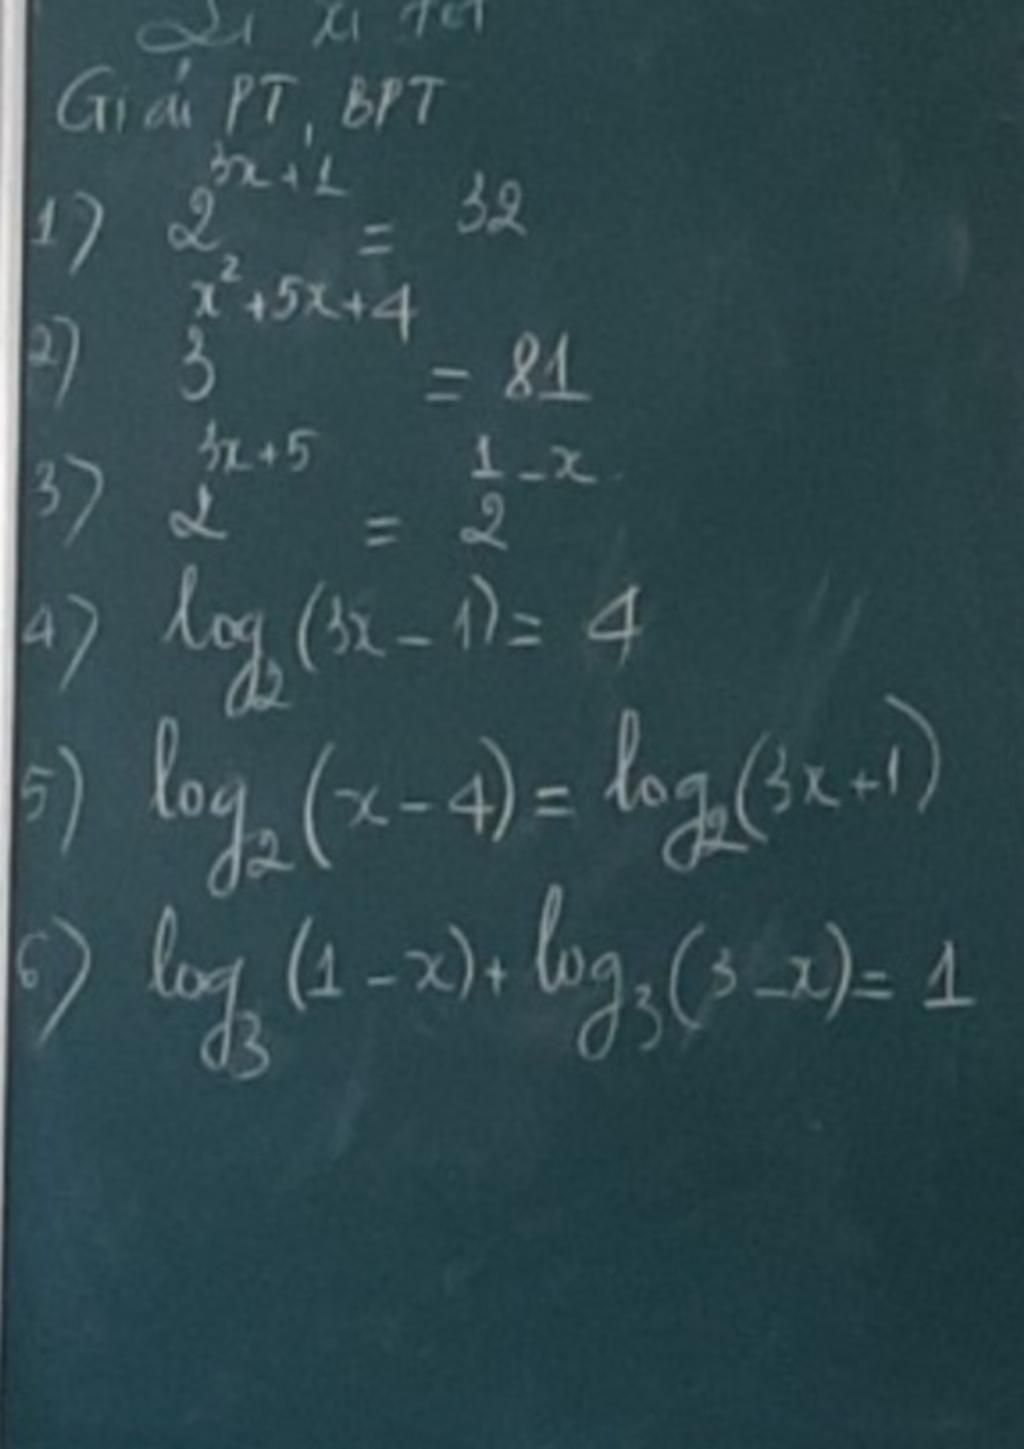 Lì xì tết
Giải PT, BPT
1) 2^{3x+1} = 32
2) 3^{x²+5x+4} = 81
3) 2^{3x+5} = 2^{1-x}
4) log₂(3x-1) = 4
5) log₂(x-4) = log₂(3x+1)
6) log₃(1-x) + log₃(3-x) = 1